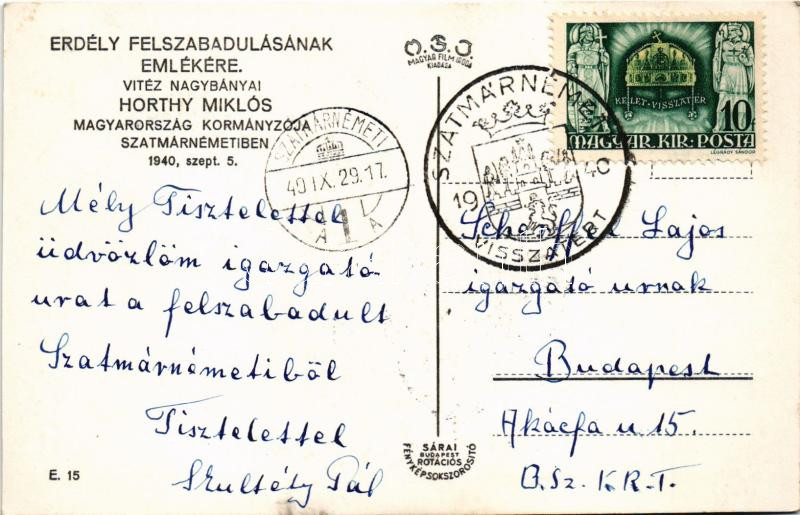 ERDÉLY FELSZABADULÁSÁNAK
EMLÉKÉRE.
VITÉZ NAGYBÁNYAI
HORTHY MIKLÓS
MAGYARORSZÁG KORMÁNYZÓJA
SZATMÁRNÉMETIBEN
1940, szept. 5.
Mély Tisztelettel
üdvözlöm igazgató
urat a felszabadult
Szatmárnémetiből
Tisztelettel
Pál
E. 15
MAGYAR FILM IRODA
KIADÁSA
SÁRAI
BUDAPEST
ROTÁCIÓS
FÉNYKÉPSOKSZOROSITÓ
SZATMÁRNÉMETI
40 IX. 29. 17.
1
A A
SZATMÁRNÉMETI
19 40
VISSZATÉRT
KELET-VISSZATÉR
10
MAGYAR·KIR·POSTA
LÉGRÁDY SÁNDOR
Lajos
igazgató urnak
Budapest
Akácfa u 15.
B.Sz.K.R.T.